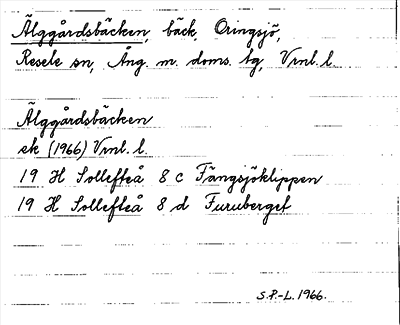 Älggårdsbäcken, bäck, Oringsjö,
Resele sn, Ång. m. doms. tg, Vrnl. l.
Älggårdsbäcken
ek (1966) Vrnl. l.
19 H Sollefteå 8 c Fängsjöklippen
19 H Sollefteå 8 d Furuberget
S.P.-L. 1966.